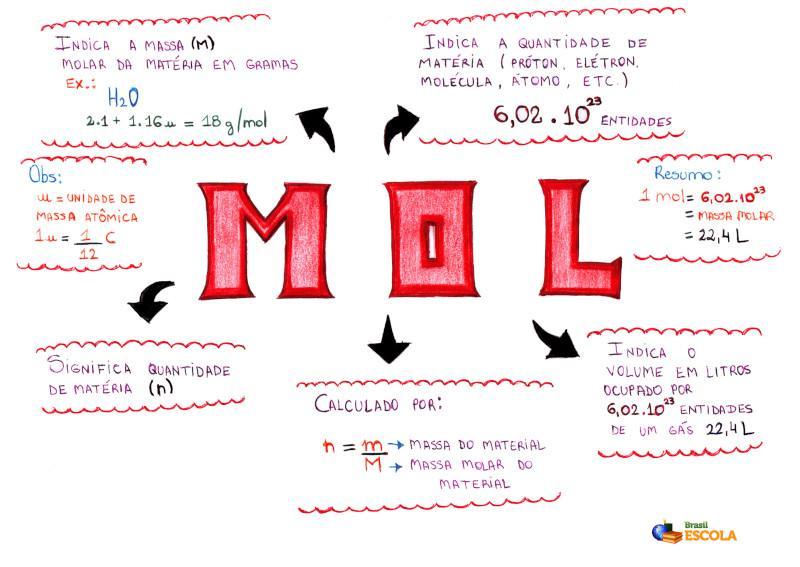 INDICA A MASSA (M)
MOLAR DA MATÉRIA EM GRAMAS
EX.:
H₂O
2.1 + 1.16u = 18g/mol
INDICA A QUANTIDADE DE
MATÉRIA (PRÓTON, ELÉTRON,
MOLÉCULA, ÁTOMO, ETC.)
6,02.10²³ ENTIDADES
Obs:
u = UNIDADE DE
MASSA ATÔMICA
1u = 1/12 C
MOL
Resumo:
1 mol = 6,02.10²³
= MASSA MOLAR
= 22,4 L
SIGNIFICA QUANTIDADE
DE MATÉRIA (n)
CALCULADO POR:
n = m → MASSA DO MATERIAL
M → MASSA MOLAR DO
MATERIAL
INDICA O
VOLUME EM LITROS
OCUPADO POR
6,02.10²³ ENTIDADES
DE UM GÁS 22,4L
Brasil
ESCOLA